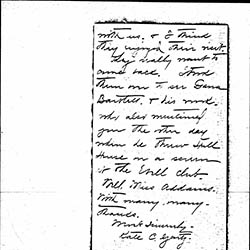 with us. & I think
they enjoyed their visit.
They really want to
come back. I took
them over to see Gana
Bartlett. & his
who also mentioned
you the other day
when he threw Hull
House on a screen
at the Club.
Well, Miss Addams.
With many, many
thanks.
Most Sincerely
Kate C.